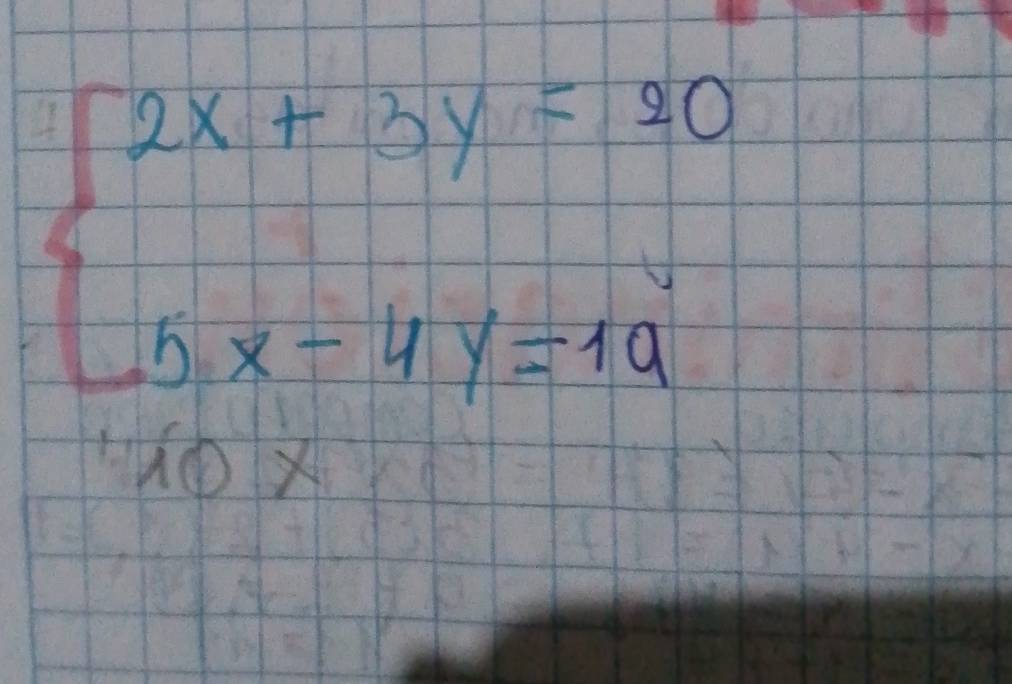 2x + 3y = 20
5x - 4y = 19
10x